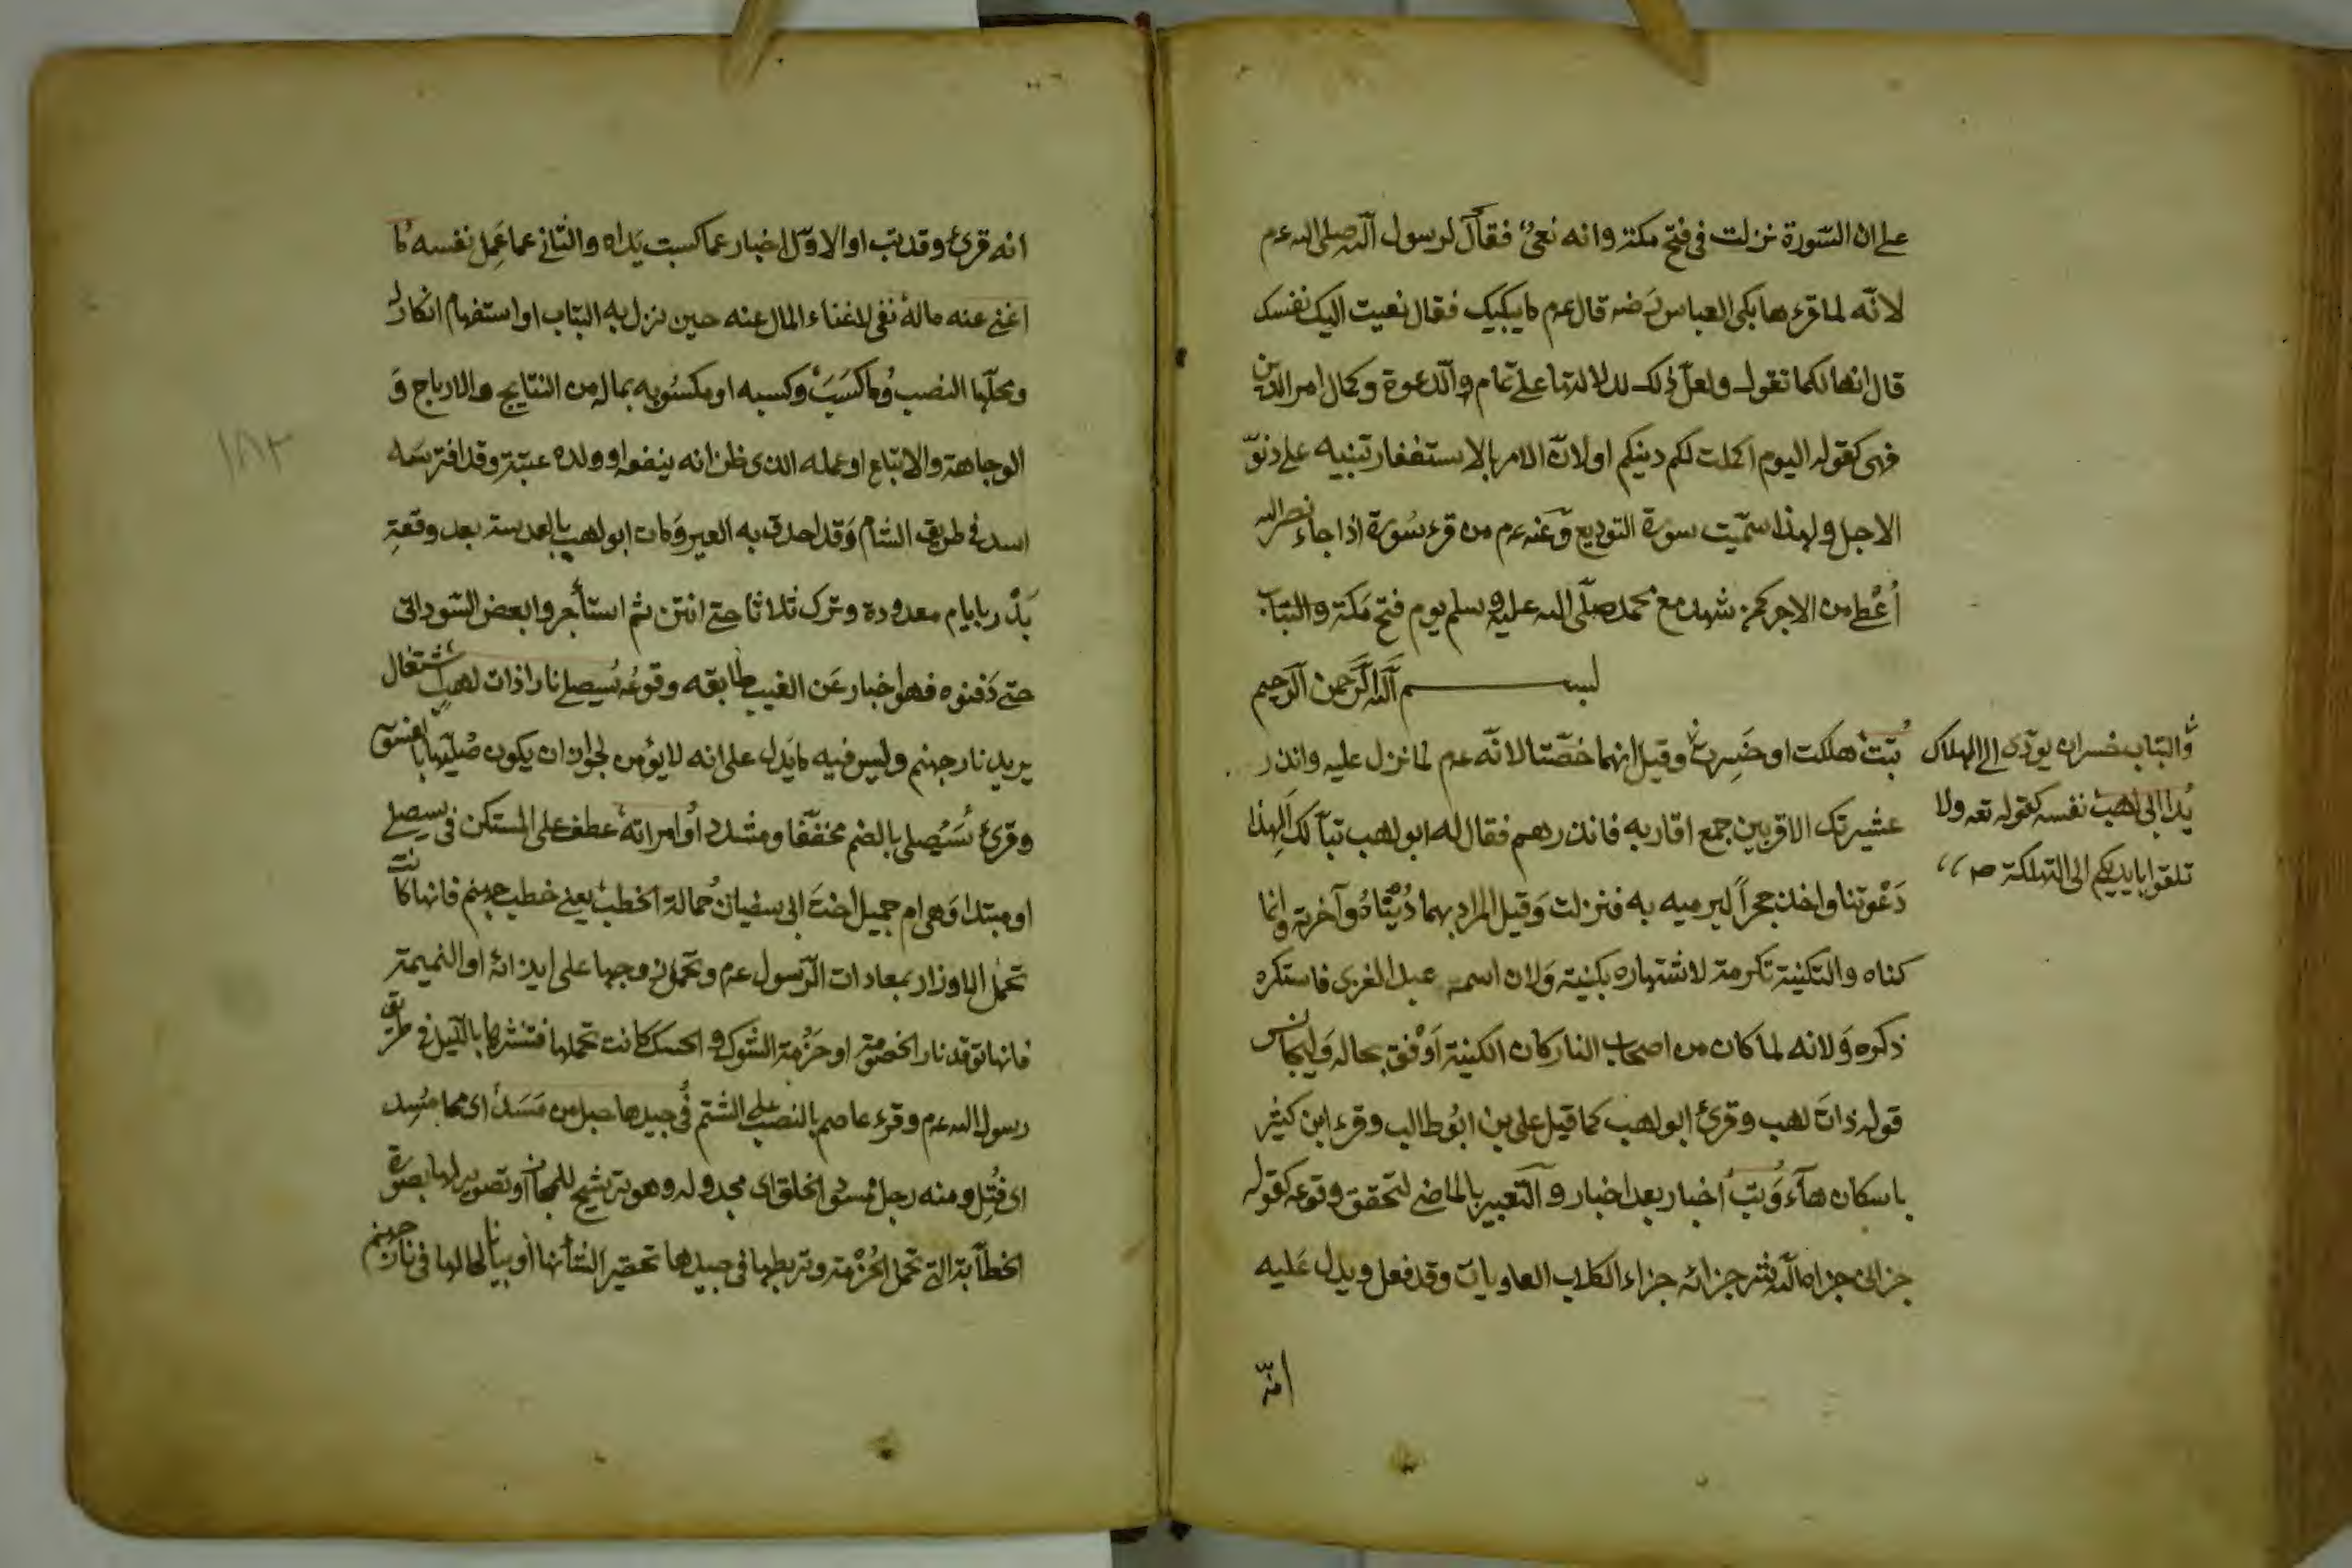 على ان السّورة نزلت فى فتح مكة وانه نعىُ فقال لرسول الله صلى الله عم
لانّه لما قرءها بكى العباس رَضه قال عم ما يبكيك فقال نعيت اليك نفسك
قال انها لكما تقول ولعلّ ذلك لدلالتها على تمام والدّعوة وكمال امر الدين
فهى كقوله اليوم اكملت لكم دينكم او لانّ الامر بالاستغفار تنبيه على دنوّ
الاجل ولهذا سمّيت سورة التوديع وَعَنه عم من قرء سُورة اذا جاء نصر الله
اُعْطى من الاجر كمن شهد مع محمد صلّى الله عليه وسلم يوم فتح مَكة والتباب
بسم اللّه الرَّحمن الرّحيم
تبّت هلكت او خَسِرت وقيل انهما خصّتا لانّه عم لما نزل عليه وانذر
عشيرتك الاقربين جمع اقاربه فانذرهم فقال له ابو لهب تبآ لك اَلِهذا
دَعْوتنا واخذ حجراً ليرميه به فنزلت وَقيل المراد بهما دُنْيَاهُ وآخرته وانما
كناه والتكنية تكرمة لاشتهاره بكنية وَلان اسمه عبد العزى فاستكره
ذكره وَلانه لما كان من اصحاب النار كان الكنية اَوْفق بحاله وَليجانس
قوله ذاتَ لهب وقرئ ابو لهب كما قيل على بن ابُو طالب وقرء ابن كثير
باسكان هآء وَتبّ اخبار بعد اخبار والتّعبير بالماضى لتحقق وقوعه كقوله
جزانى جزاه اللّه شر جزائه جزاء الكلاب العاويات وقد فعل ويدل عَليه
انّه
والتباب خسران يودّى الى الهلاك
يدا ابى لهب نفسه كقوله تعه ولا
تلقوا بايديكم الى التهلكة صح
انه قرئ وقد تب او الاوّل اخبار عما كسبت يَداه والثانى عما عَمِل نفسه مٰا
اغنى عنه مالهُ نفى لاغناء المال عنه حين نزل به التباب او استفهام انكار له
ومحلّها النصب وُما كسَبَ وكسبه او مكسُوبه بماله من النتايج والارباح وَ
الوجاهة والاتباع او عمله الذى ظن انه ينفعه او ولده عتبة وقد افترسَه
اسد فى طريق الشام وَقد احدق به العير وَمات ابو لهب بالعدسة بعد وقعةِ
بَدْر بايام معدودة وترك ثلاثا حتى انتن ثم استأجروا بعض السّودان
حتى دَفنوه فهو اخبار عَن الغيب طابقه وقوعُه سُيصلى نارا ذات لهبٍ اشتغال
يريد نار جهنم وليس فيه ما يَدل على انه لا يؤمن لجواز ان يكون صُليّها بالفسق
وقرئ سَيُصلى بالضم مخففّا ومشدد اوُامراته عطف على المستكن فى سيصلى
او مبتدا وَهى ام جميل اختَ ابى سفيان حُمالة الحطب يعنى حطب جهنم فانها كانت
تحمل الاوزار بمعادات الرّسول عم وتحمل زوجها على ايذائه او النميمة
فانها توقد نار الخصومة او حَزْمة الشوك والحسك كانت تحملها فتنشرها بالّليل فى طريق
رسول الله عم وقرء عاصم بالنصب على الشتم فُى جيدها حبل من مَسَد اى مما مُسِد
اى فُتِل ومنه رجل ممسود الخلق اى مجدوله وهو ترشيح للمجاز او تصوير لها بصورة
الحطّابة التى تحمل الحُزْمة وتربطها فى جيدها تحقير الشأنها او بيانا لحالها فى نار جهنم
١٨٢